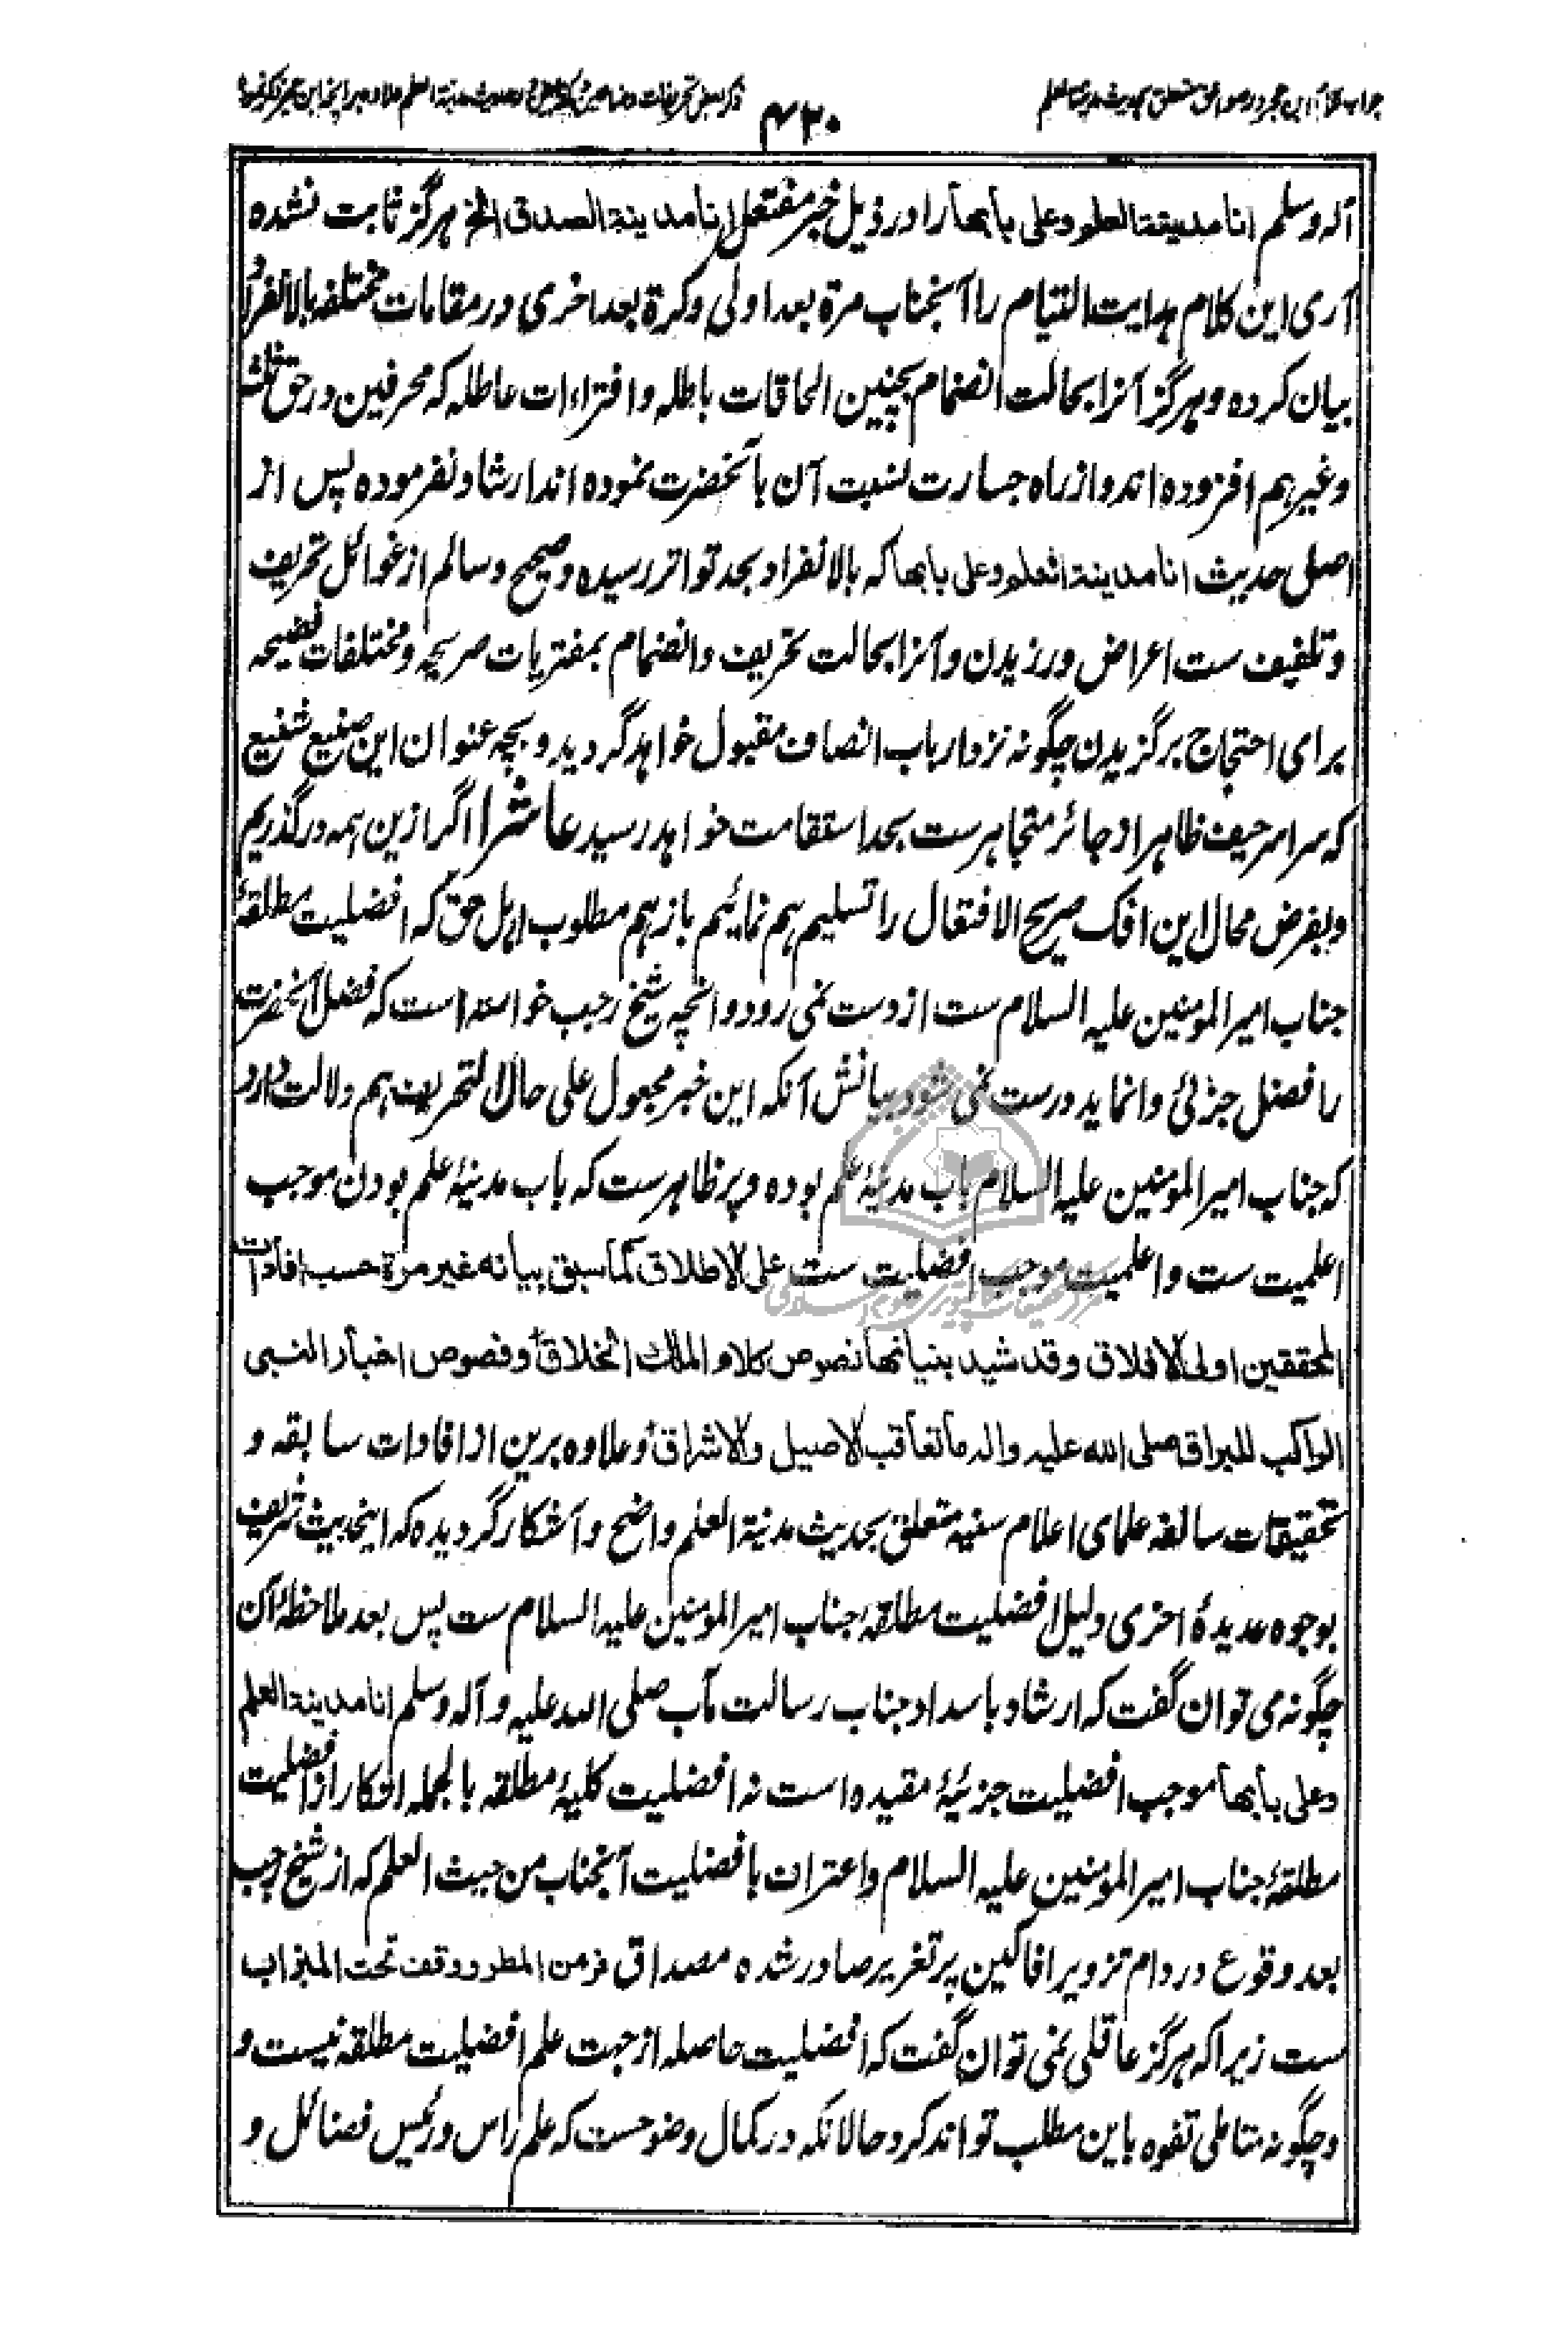 جواب کلام ابن حجر در صواعق متعلق بحدیث مدینة العلم
۴۲۰
ذکر بعض تحریفات وضاعین
آله وسلم انا مدینة العلم وعلی بابها را در ذیل خبر مفتعل انا مدینة الصدق الخ هرگز ثابت نشده
آری این کلام هدایت التیام را آنجناب مرة بعد اولی وکرة بعد اخری در مقامات مختلفه بالانفراد
بیان کرده وهرگز آنرا بحالت انضمام بچنین الحاقات باطله وافتراءات عاطله که محرفین در حق ثلثه
وغیرهم افزوده اند واز راه جسارت نسبت آن بآنحضرت نموده اند ارشاد نفرموده پس از
اصل حدیث انا مدینة العلم وعلی بابها که بالانفراد بحد تواتر رسیده وصحیح وسالم از غوائل تحریف
وتلفیف ست اعراض ورزیدن وآنرا بحالت تحریف وانضمام بمفتریات صریحه ومختلفات فضیحه
برای احتجاج برگزیدن چگونه نزد ارباب انصاف مقبول خواهد گردید وبچه عنوان این صنیع شنیع
که سراسر حیف ظاهر او جائر متجاهر ست بحد استقامت خواهد رسید عاشرا اگر ازین همه در گذریم
وبفرض محال این افک صریح الافتعال را تسلیم هم نمائیم باز هم مطلوب اهل حق که افضلیت مطلقهٔ
جناب امیر المومنین علیه السلام ست از دست نمی رود وآنچه شیخ رجب خواسته است که فضل آنحضرت
را فضل جزئی وانماید درست نمی شود بیانش آنکه این خبر مجعول علی حال التحریف هم دلالت دارد
که جناب امیر المومنین علیه السلام باب مدینهٔ علم بوده وپر ظاهرست که باب مدینهٔ علم بودن موجب
اعلمیت ست واعلمیت موجب افضلیت ست علی الاطلاق کما سبق بیانه غیر مرة حسب افادات
المحققین اولی الافلاق وقد شید بنیانها نصوص کلام الملک الخلاق وفصوص اخبار النبی
الراکب للبراق صلی الله علیه واله ما تعاقب الاصیل والاشراق وعلاوه برین از افادات سابقه و
تحقیقات سالفه علمای اعلام سنیه متعلق بحدیث مدینة العلم واضح وآشکار گردیده که اینحدیث شریف
بوجوه عدیدهٔ اخری دلیل افضلیت مطلقهٔ جناب امیر المومنین علیه السلام ست پس بعد ملاحظهٔ آن
چگونه می توان گفت که ارشاد باسداد جناب رسالت مآب صلی الله علیه وآله وسلم انا مدینة العلم
وعلی بابها موجب افضلیت جزئیهٔ مقیده است نه افضلیت کلیهٔ مطلقه بالجمله انکار از افضلیت
مطلقهٔ جناب امیر المومنین علیه السلام واعتراف بافضلیت آنجناب من حیث العلم که از شیخ رجب
بعد وقوع در دام تزویر افاکین پر تغریر صادر شده مصداق فر من المطر ووقف تحت المیزاب
ست زیرا که هرگز عاقلی نمی توان گفت که افضلیت حاصله از جهت علم افضلیت مطلقه نیست و
وچگونه متاملی تفوه باین مطلب تواند کرد وحالانکه در کمال وضوحست که علم راس ورئیس فضائل و